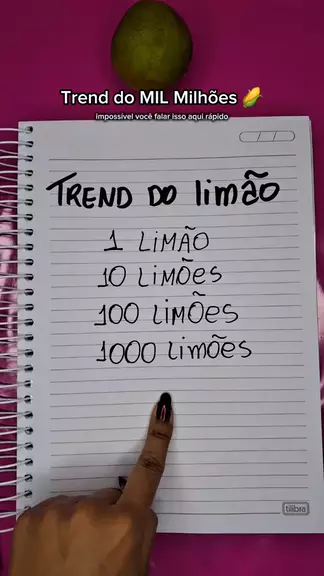 Trend do MIL Milhões 🌽
impossível você falar isso aqui rápido
TREND DO limão
1 LIMÃO
10 LIMÕES
100 LIMÕES
1000 LIMÕES
tilibra